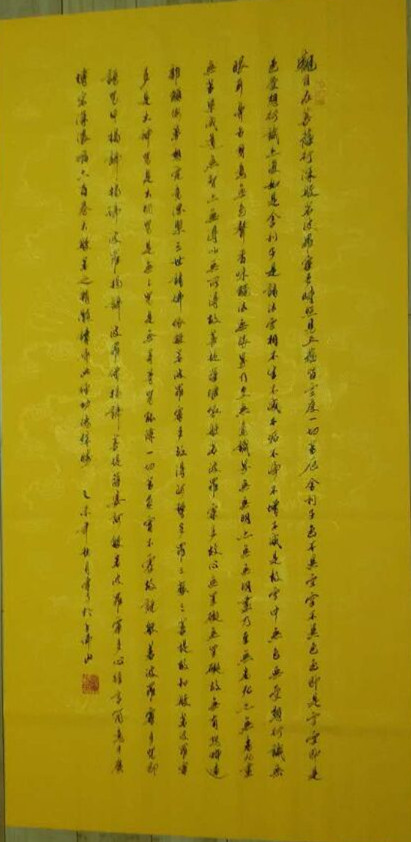 觀自在菩薩行深般若波羅蜜多時照見五蘊皆空度一切苦厄舍利子色不異空空不異色色即是空空即是
色受想行識亦復如是舍利子是諸法空相不生不滅不垢不淨不增不減是故空中無色無受想行識無
眼耳鼻舌身意無色聲香味觸法無眼界乃至無意識界無無明亦無無明盡乃至無老死亦無老死盡
無苦集滅道無智亦無得以無所得故菩提薩埵依般若波羅蜜多故心無罣礙無罣礙故無有恐怖遠
離顛倒夢想究竟涅槃三世諸佛依般若波羅蜜多故得阿耨多羅三藐三菩提故知般若波羅蜜
多是大神咒是大明咒是無上咒是無等等咒能除一切苦真實不虛故說般若波羅蜜多咒即
說咒曰揭諦揭諦波羅揭諦波羅僧揭諦菩提薩婆訶般若波羅蜜多心經字簡意
博宏深濃縮六百卷大般若之精髓功德殊勝
乙未年秋月書於千佛山